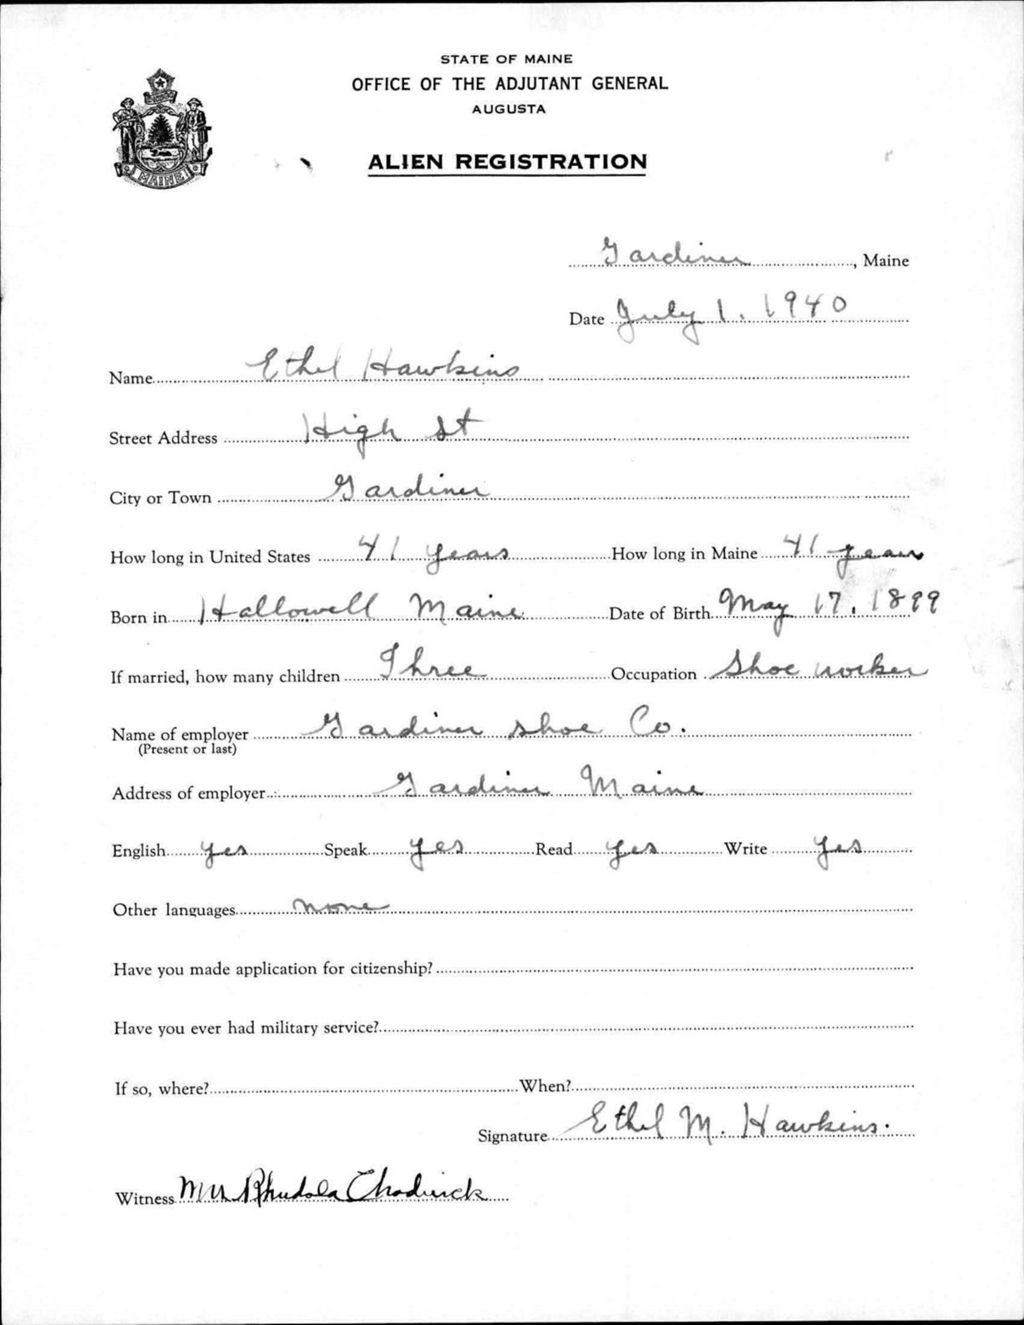 STATE OF MAINE
OFFICE OF THE ADJUTANT GENERAL
AUGUSTA
MAINE
ALIEN REGISTRATION
Gardiner, Maine
Date July 1, 1940
Name Ethel Hawkins
Street Address High St
City or Town Gardiner
How long in United States 41 years How long in Maine 41 years
Born in Hallowell Maine Date of Birth May 17, 1899
If married, how many children Three Occupation Shoe worker
Name of employer Gardiner Shoe Co.
(Present or last)
Address of employer Gardiner Maine
English yes Speak yes Read yes Write yes
Other languages none
Have you made application for citizenship?
Have you ever had military service?
If so, where? When?
Signature Ethel M. Hawkins.
Witness Chadwick